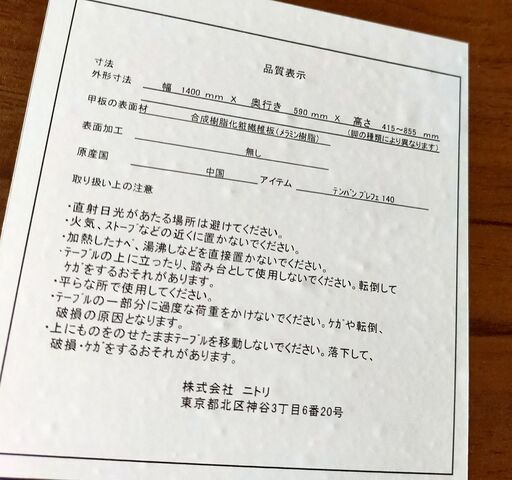 品質表示
寸法
外形寸法 幅 1400 mm X 奥行き 590 mm X 高さ 415~855 mm
(脚の種類により異なります)
甲板の表面材 合成樹脂化粧繊維板(メラミン樹脂)
表面加工 無し
原産国 中国 アイテム テンバン プレフェ 140
取り扱い上の注意
・直射日光があたる場所は避けてください。
・火気、ストーブなどの近くに置かないでください。
・加熱したナベ、湯沸しなどを直接置かないでください。
・テーブルの上に立ったり、踏み台として使用しないでください。転倒して
ケガをするおそれがあります。
・平らな所で使用してください。
・テーブルの一部分に過度な荷重をかけないでください。ケガや転倒、
破損の原因となります。
・上にものをのせたままテーブルを移動しないでください。落下して、
破損・ケガをするおそれがあります。
株式会社 ニトリ
東京都北区神谷3丁目6番20号